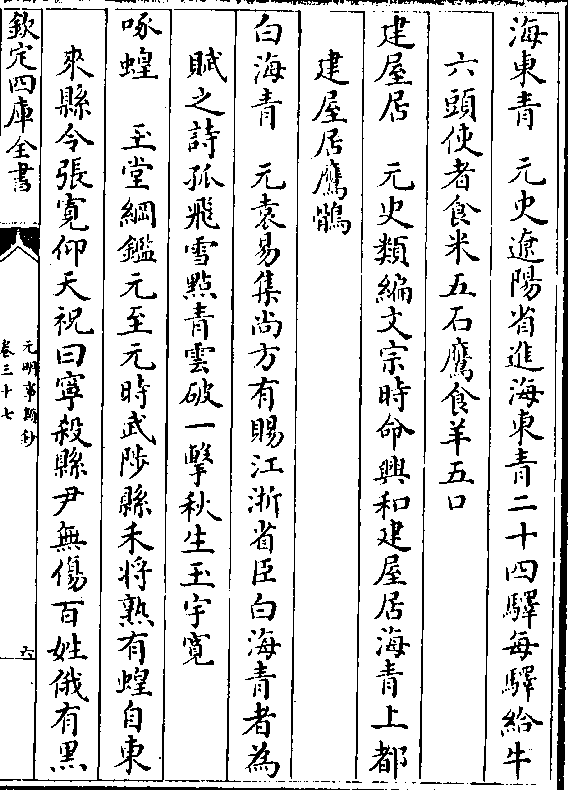 海東青　元史遼陽省進海東青二十四驛每驛給牛
六頭使者食米五石鷹食羊五口
建屋居　元史類編文宗時命興和建屋居海青上都
建屋居鷹鶻
白海青　元袁易集尚方有賜江浙省臣白海青者為
賦之詩孤飛雪點青雲破一擊秋生玉宇寛
啄蝗　玉堂綱鑑元至元時武陟縣禾將熟有蝗自東
來縣令張寛仰天祝曰寧殺縣尹無傷百姓俄有黑
欽定四庫全書
元明事類鈔
卷三十七
六